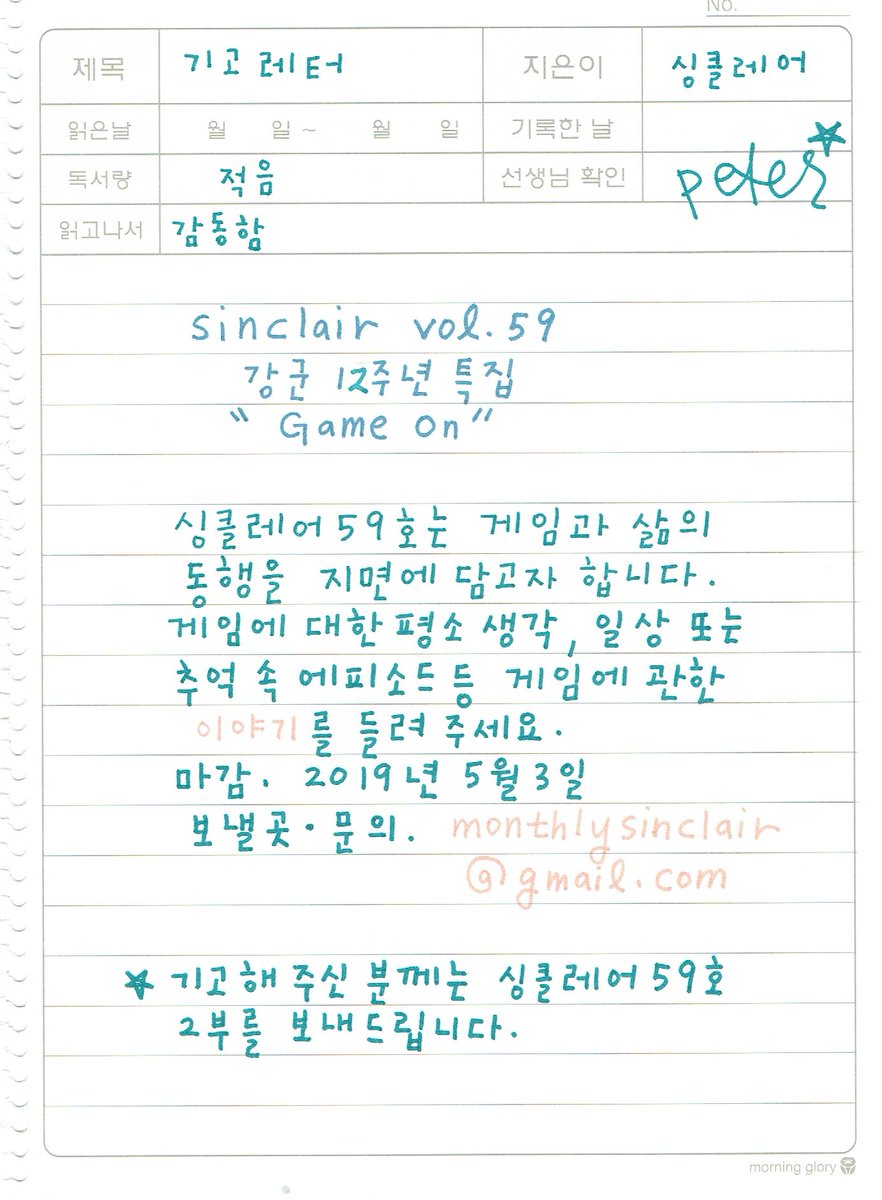 No.
제목 기고레터 지은이 싱클레어
읽은날 월 일 ~ 월 일 기록한 날
독서량 적음 선생님 확인 peter
읽고나서 감동함
sinclair vol. 59
강군 12주년 특집
" Game on "
싱클레어 59호는 게임과 삶의
동행을 지면에 담고자 합니다.
게임에 대한 평소 생각, 일상 또는
추억 속 에피소드 등 게임에 관한
이야기를 들려 주세요.
마감. 2019년 5월 3일
보낼곳·문의. monthlysinclair
@gmail.com
★ 기고해 주신 분께는 싱클레어 59호
2부를 보내드립니다.
morning glory